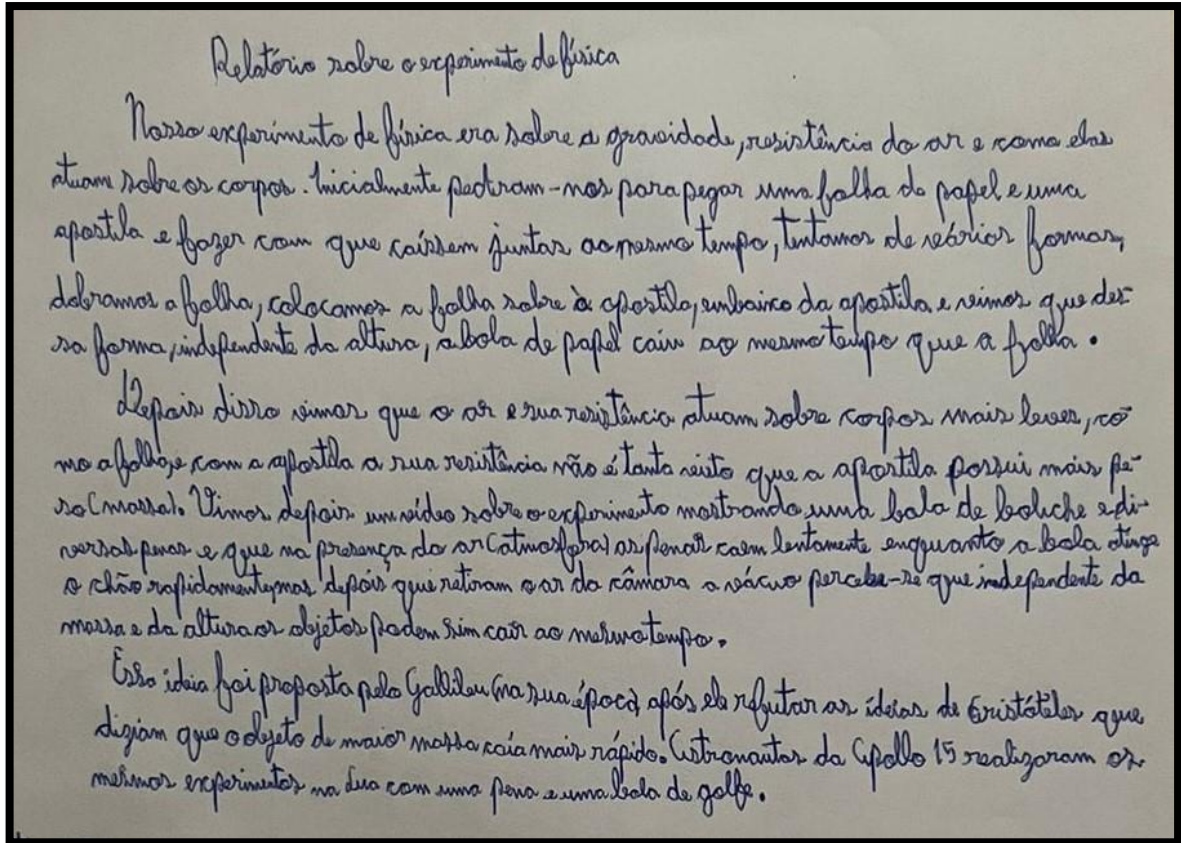 Relatório sobre o experimento de física
Nosso experimento de física era sobre a gravidade, resistência do ar e como elas
atuam sobre os corpos. Inicialmente pediram-nos para pegar uma folha de papel e uma
apostila e fazer com que caíssem juntas ao mesmo tempo, tentamos de várias formas,
dobramos a folha, colocamos a folha sobre à apostila, embaixo da apostila e vimos que des-
sa forma, independente da altura, a bola de papel caiu ao mesmo tempo que a folha.
Depois disso vimos que o ar e sua resistência atuam sobre corpos mais leves, co-
mo a folha, e com a apostila a sua resistência não é tanta visto que a apostila possui mais pe-
so (massa). Vimos depois um vídeo sobre o experimento mostrando uma bola de boliche e di-
versas penas e que na presença do ar (atmosfera) as penas caem lentamente enquanto a bola atinge
o chão rapidamente, mas depois que retiram o ar da câmara a vácuo percebe-se que independente da
massa e da altura os objetos podem sim cair ao mesmo tempo.
Essa ideia foi proposta pelo Gallileu (na sua época) após ele refutar as ideias de Aristóteles que
diziam que o objeto de maior massa caía mais rápido. Astronautas da Apollo 15 realizaram os
mesmos experimentos na Lua com uma pena e uma bola de golfe.